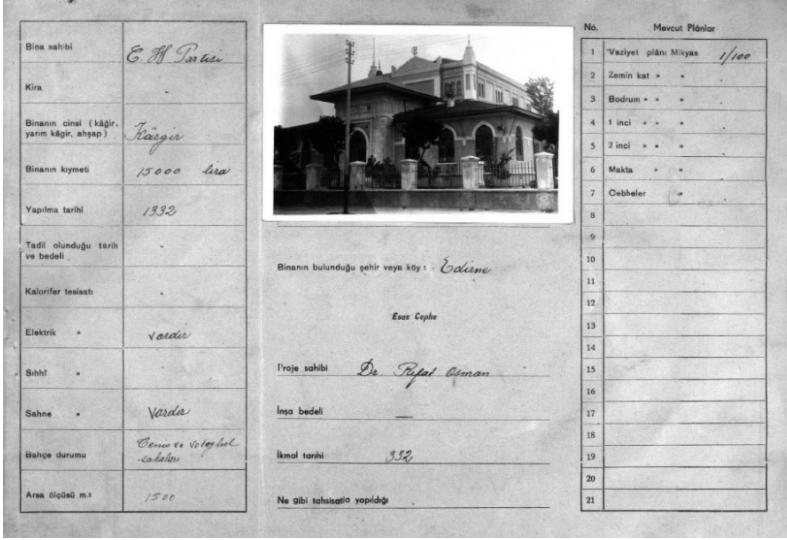 Bina sahibi C. H Partisi
Kira -
Binanın cinsi (kâğir,
yarım kâgir, ahşap) Kârgir
Binanın kıymeti 15000 lira
Yapılma tarihi 1332
Tadil olunduğu tarih
ve bedeli -
Kalorifer tesisatı -
Elektrik " vardır
Sıhhî " -
Sahne " Vardır
Bahçe durumu Tenis ve voleybol
sahaları
Arsa ölçüsü m.² 1500
Binanın bulunduğu şehir veya köy : Edirne
Esas Cephe
Proje sahibi Dr. Rıfat Osman
İnşa bedeli —
İkmal tarihi 332
Ne gibi tahsisatla yapıldığı
No. Mevcut Plânlar
1 Vaziyet plânı Mikyas 1/100
2 Zemin kat " "
3 Bodrum " " "
4 1 inci " " "
5 2 inci " " "
6 Makta " "
7 Cebheler "
8
9
10
11
12
13
14
15
16
17
18
19
20
21